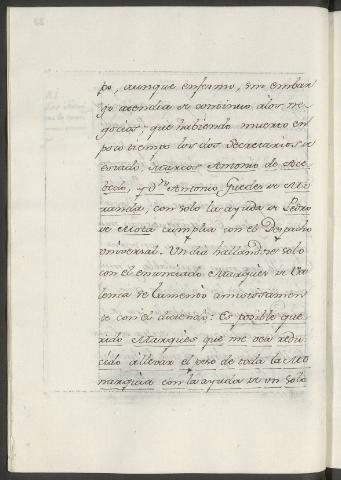 po, aunque enfermo, sin embar
go atendia de continuo a los ne
gocios; que habiendo muerto en
poco tiempo los dos Secretarios de
Estado, Marcos Antonio de Aze
bedo, y Dn. Antonio Guedes de Mi
randa, con solo la ayuda de Pedro
de Mota cumplia con el Despacho
universal. Un dia hallandose solo
con el enunciado Marques de Va
lencia se lamentó amistosamen
te con el diciendo: Es posible que
rido Marques que me vea redu
cido a llevar el peso de toda la Mo
narquia con la ayuda de un solo